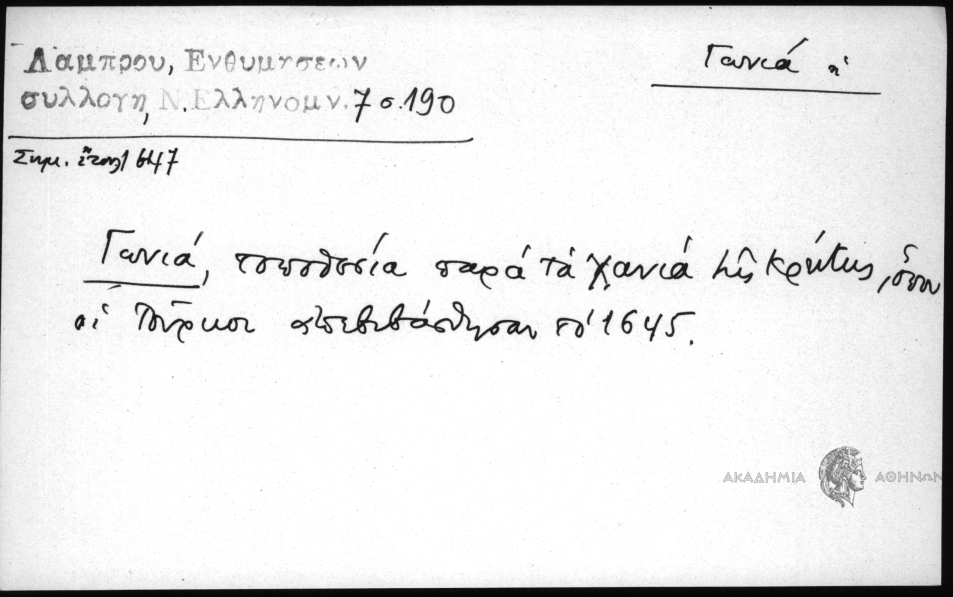 Λαμπρου, Ενθυμησεων
συλλογη, Ν. Ελληνομν. 7 σ. 190
Σημ. ἔτους 1647
Γωνιά ἡ
Γωνιά, τοποθεσία παρά τά Χανιά τῆς Κρήτης, ὅπου
οἱ Τοῦρκοι ἀπεβιβάσθησαν τό 1645.
ΑΚΑΔΗΜΙΑ ΑΘΗΝΩΝ